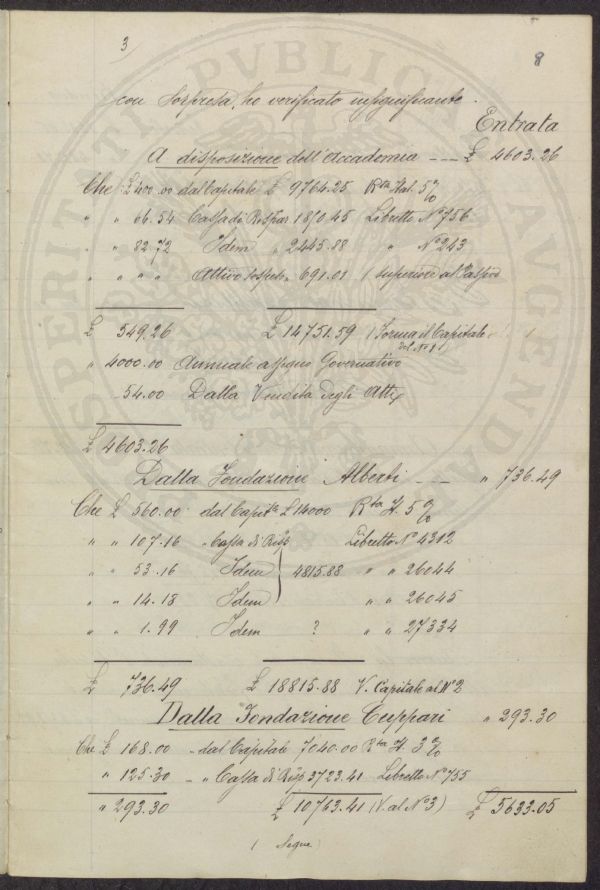 3
8
con sorpresa, ho verificato insignificante.
Entrata
A disposizione dell'Accademia --- £ 4603.26
Che £ 400.00 dal Capitale £ 9764.25 Rta Ital. 5%
" " 66.54 Cassa di Rispar 1850.45 Libretto N° 756
" " 82.72 Idem " 2445.88 " N° 243
" " " " Attivo sospeso " 691.01 ( superiore al
£ 549.26 £ 14751.59 (Forma il Capitale
del N° 1)
" 4000.00 Annuale assegno Governativo
54.00 Dalla Vendita degli Atti
£ 4603.26
Dalla Fondazione Alberti --- " 736.49
Che £ 560.00 dal Capitle £ 14000 Rta It. 5%
" " 107.16 " Cassa di Risp Libretto N° 4312
" " 53.16 Idem 4815.88 " " 26044
" " 14.18 Idem " " 26045
" " 1.99 Idem ? " " 27334
£ 736.49 £ 18815.88 V. Capitale al N° 2
Dalla Fondazione Cuppari " 293.30
Che £ 168.00 - dal Capitale 7040.00 Rta It. 3%
" 125.30 - " Cassa di Risp 3723.41 Libretto N° 755
" 293.30 £ 10763.41 (V. al N° 3) £ 5633.05
( Segue
PROSPERITATI PUBLICAE AUGENDAE